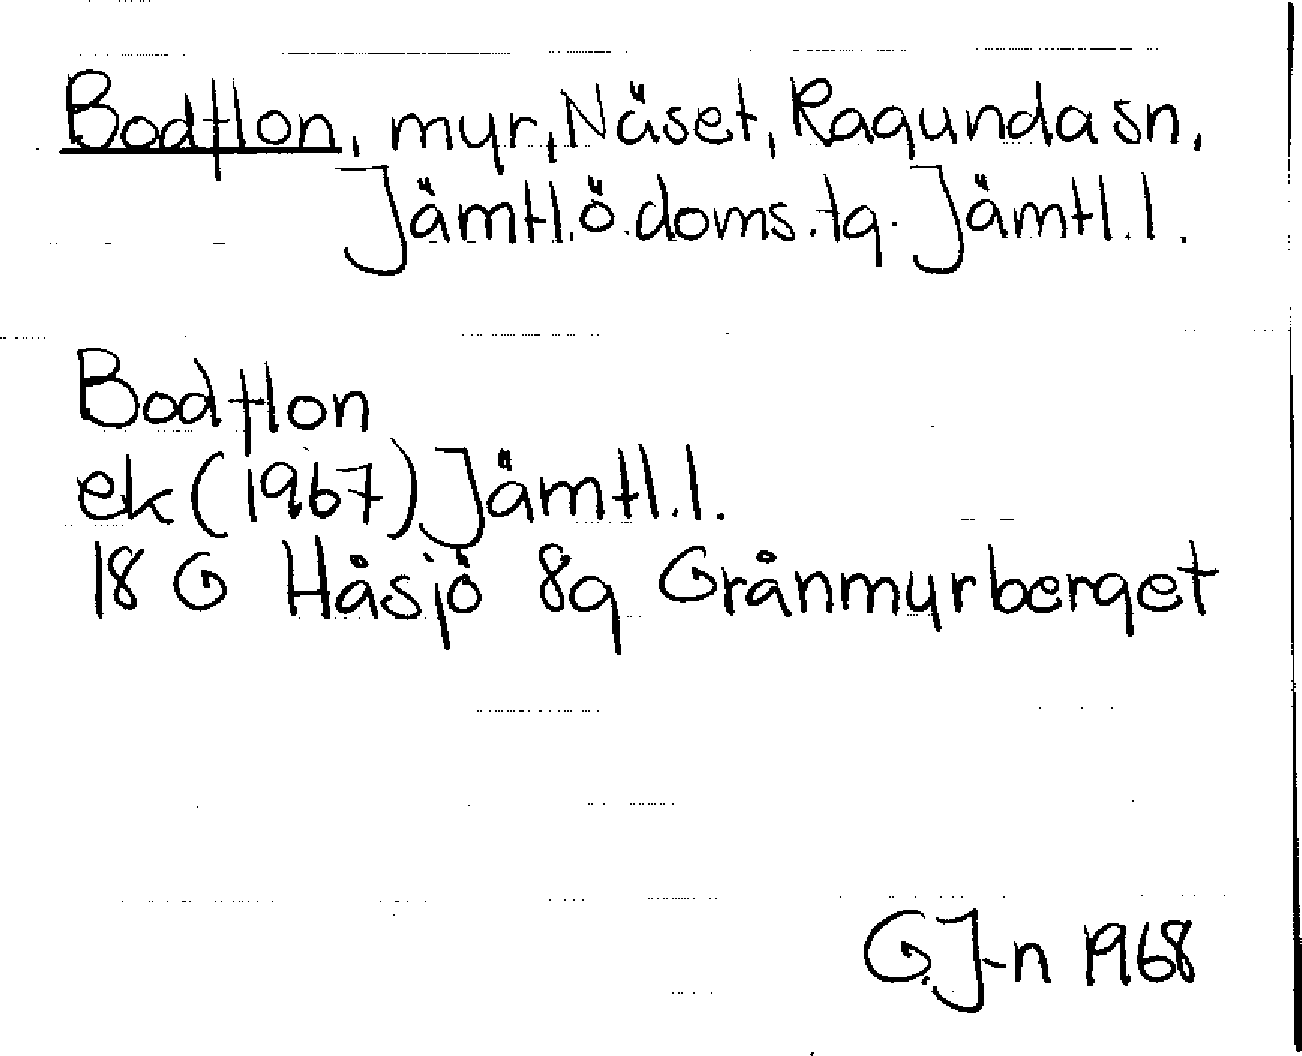 Bodflon, myr, Näset, Ragunda sn,
Jämtl.ö.doms.tg. Jämtl.l.
Bodflon
ek (1967) Jämtl.l.
18 G Håsjö 8g Grånmyrberget
G.J-n 1968